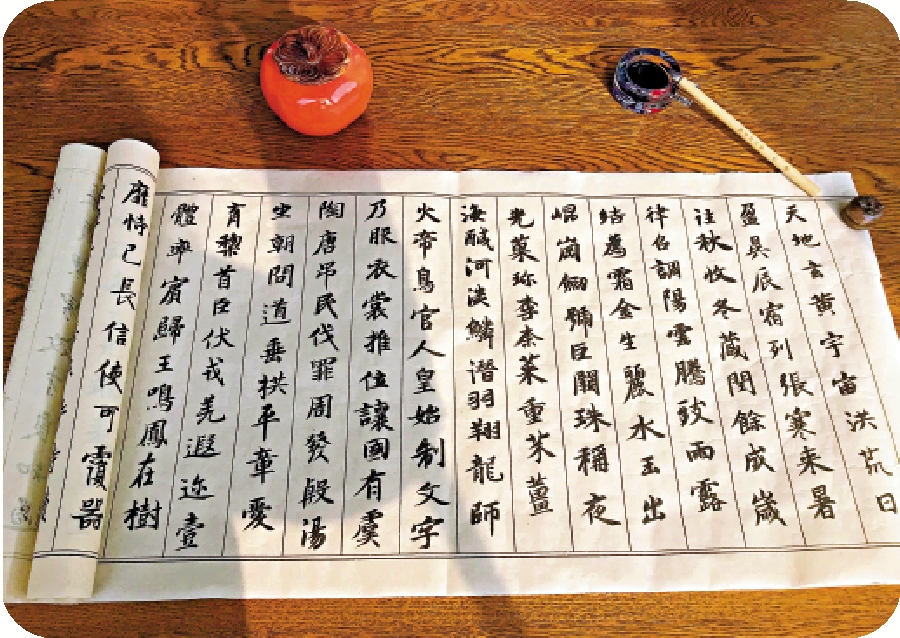 天地玄黃宇宙洪荒日
盈昃辰宿列張寒来暑
往秋收冬藏閏餘成歲
律呂調陽雲騰致雨露
結為霜金生麗水玉出
崐崗劒號巨闕珠稱夜
光菓珍李柰菜重芥薑
海鹹河淡鱗潛羽翔龍師
火帝鳥官人皇始制文字
乃服衣裳推位讓國有虞
陶唐吊民伐罪周發殷湯
坐朝問道垂拱平章愛
育黎首臣伏戎羌遐迩壹
體率賓歸王鳴鳳在樹
靡恃己長信使可覆器